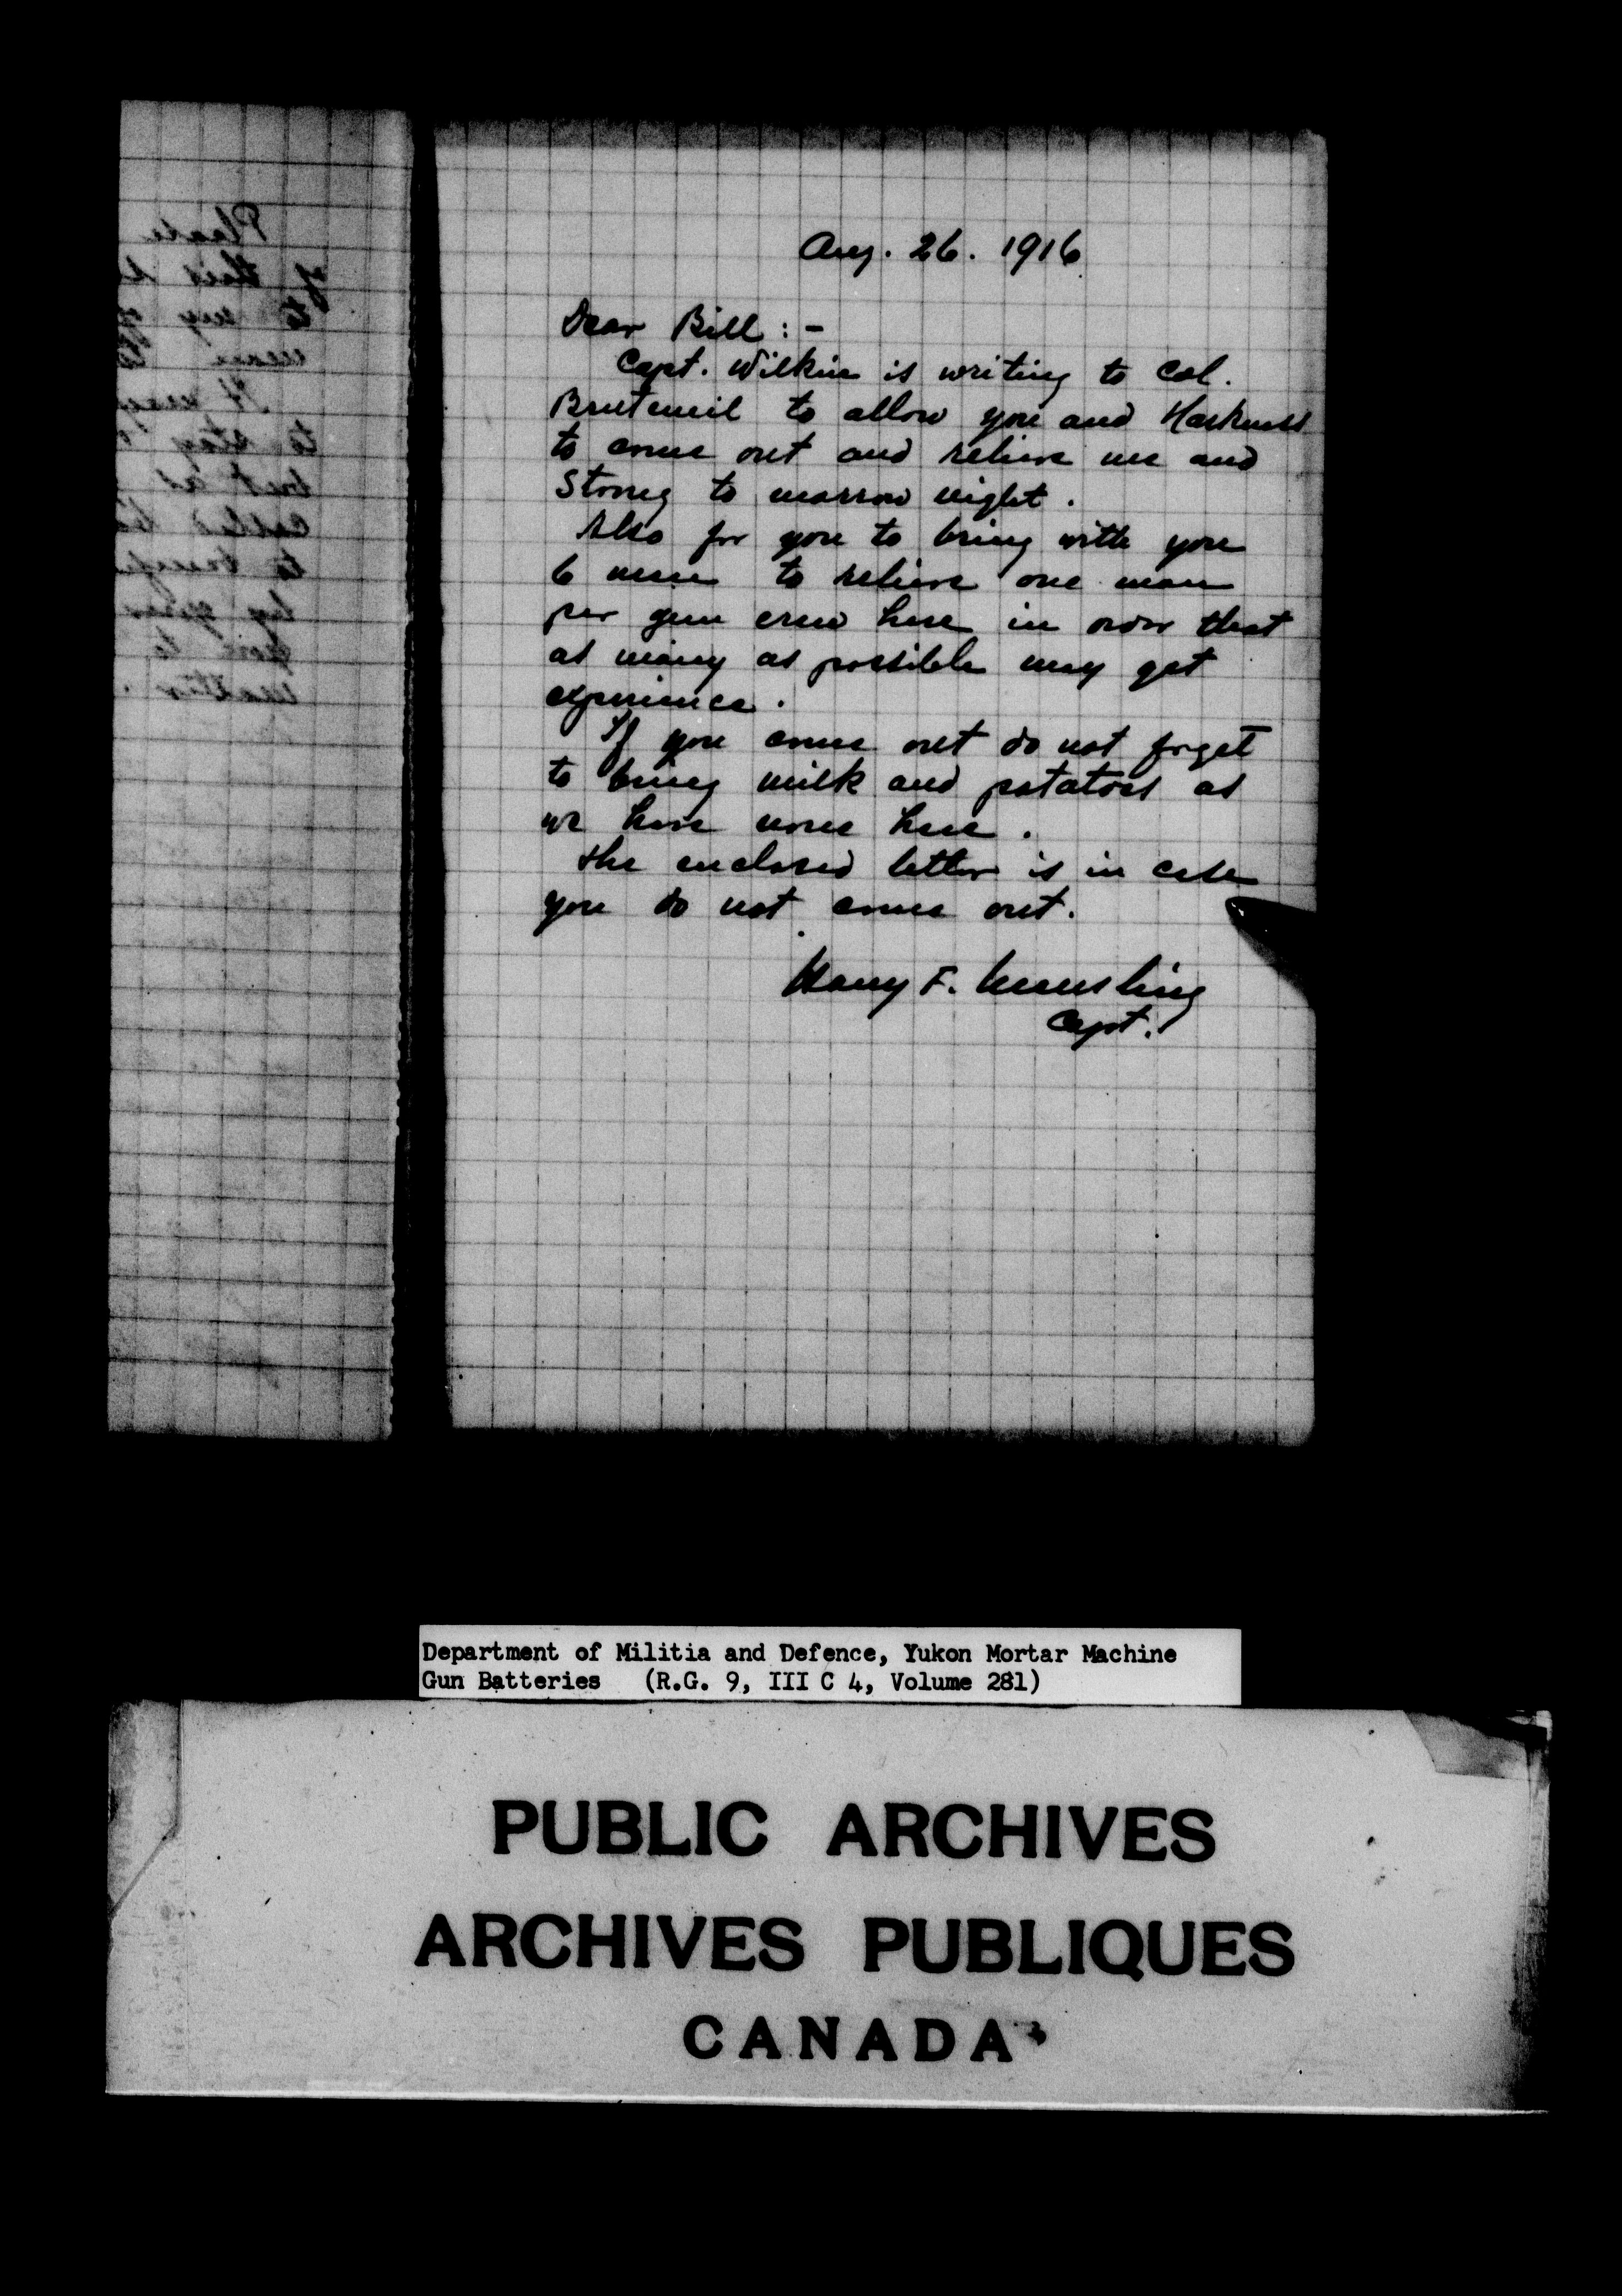 Aug. 26. 1916
Dear Bill : -
Capt. Wilkin is writing to Col.
Brutenuil to allow you and Harkness
to come out and relieve me and
Strong to morrow night.
Also for you to bring with you
6 men to relieve one man
per gun crew here in order that
as many as possible may get
experience.
If you come out do not forget
to bring milk and potatoes as
we have none here.
The enclosed letter is in case
you do not come out.
Harry F. Meurling
Capt.
Please
of this
to my
mean
It may
to stay
but as
called
to
by
you to
matter.
Department of Militia and Defence, Yukon Mortar Machine
Gun Batteries (R.G. 9, III C 4, Volume 281)
PUBLIC ARCHIVES
ARCHIVES PUBLIQUES
CANADA